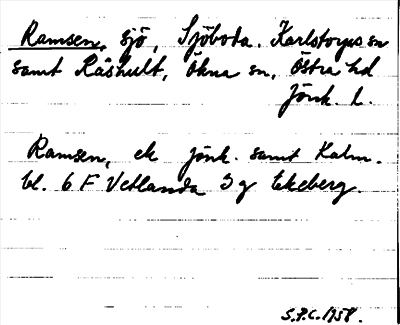 Ramsen, sjö, Sjöboda. Karlstorps sn
samt Råshult, Ökna sn, Östra hd
Jönk. l.
Ramsen, ek Jönk. samt Kalm.
bl. 6 F Vetlanda 3 g Ekeberg.
S.P.C. 1958.